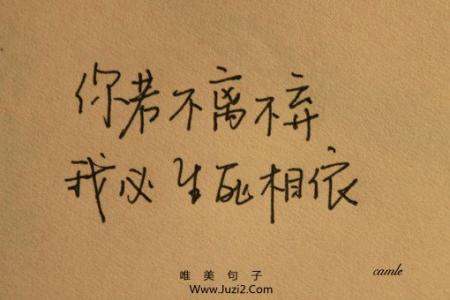 你若不离不弃
我必生死相依
camle
唯美句子
Www.Juzi2.Com